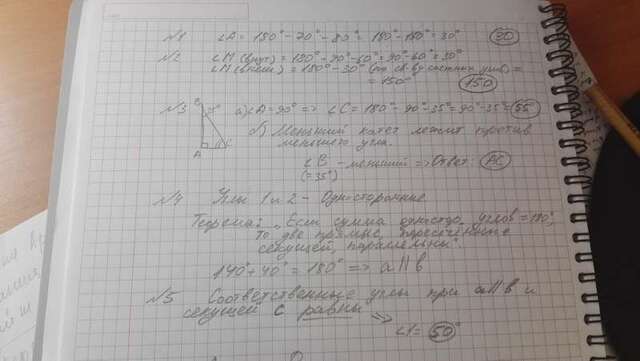 №1 ∠A = 180° - 70° - 80° = 180° - 150° = 30° 30
№2 ∠M (внут) = 180° - 90° - 60° = 90° - 60° = 30°
∠M (внеш) = 180° - 30° (по св-ву смежных угл) =
= 150° 150
№3 а) ∠A = 90° => ∠C = 180° - 90° - 35° = 90° - 35° = 55
A
б) Меньший катет лежит против
меньшего угла.
∠B - меньший => Ответ: AC
(=35°)
№4 Углы 1 и 2 - Односторонние
Теорема: „Если сумма одностор углов = 180°,
То две прямые, пересечённые
секущей, параллельны"
140° + 40° = 180° => a || b
№5 Соответственные углы при a || b и
секущей c равны =>
∠1 = 50°